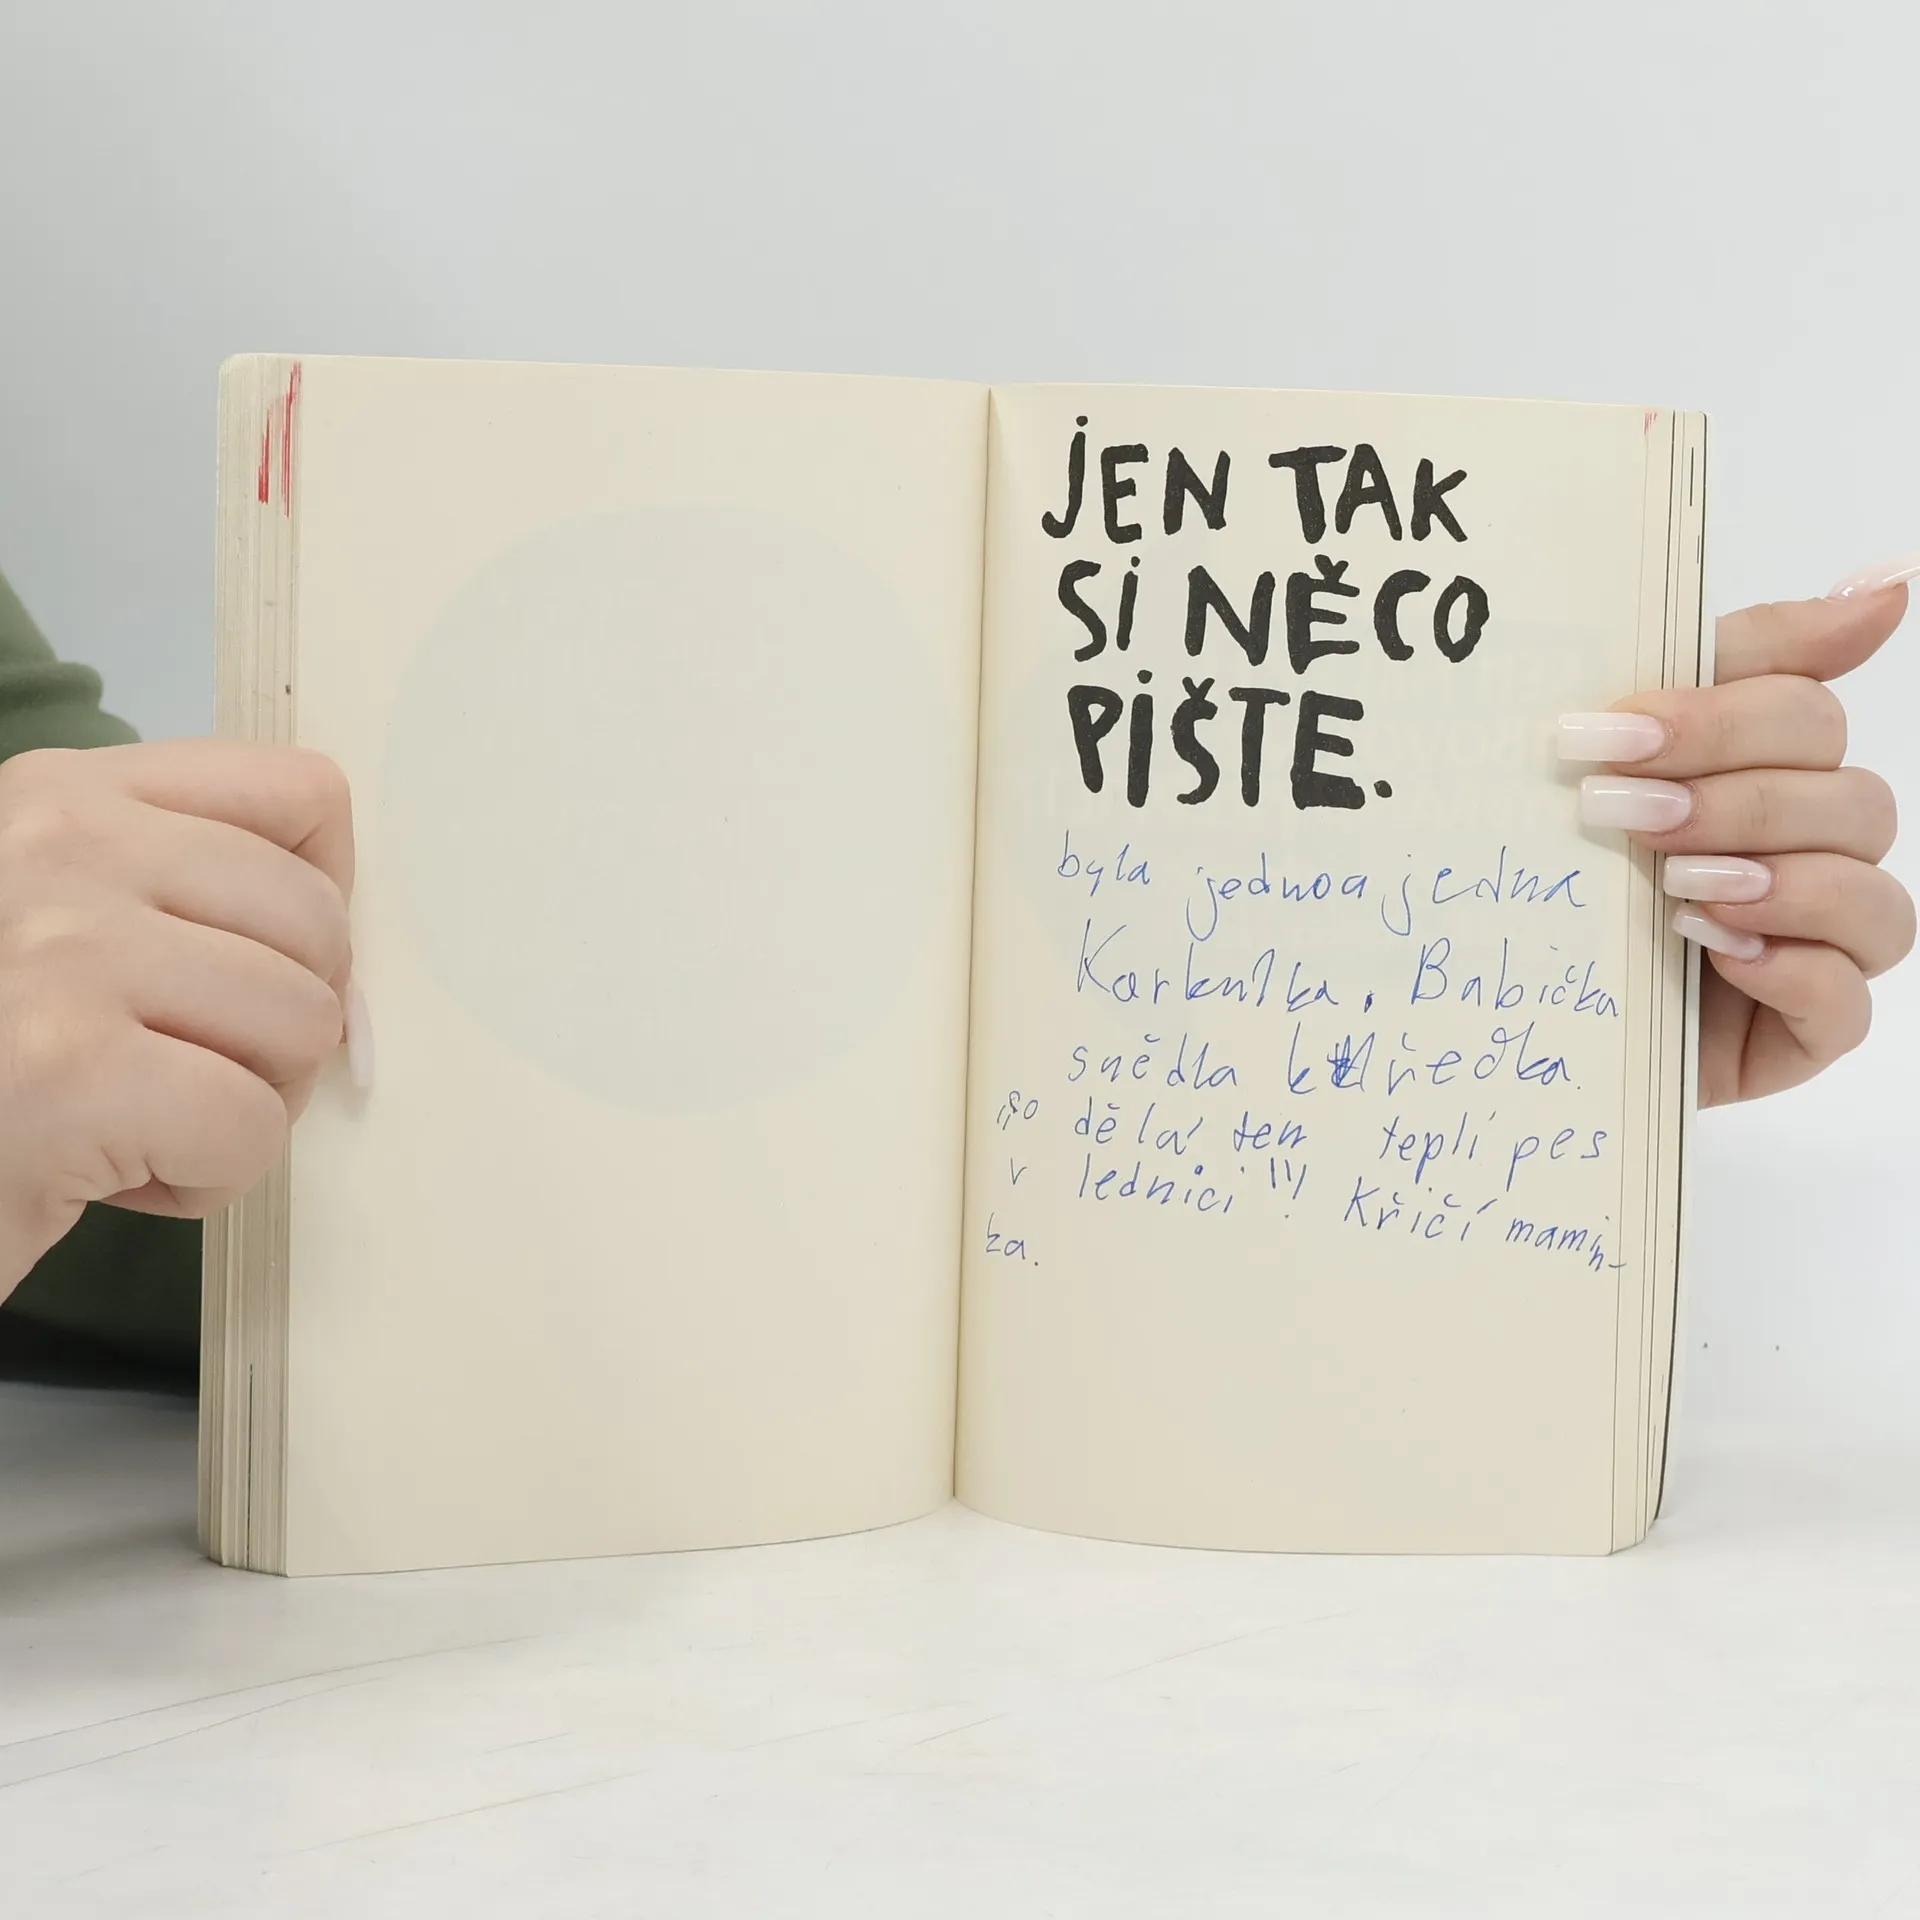 JEN TAK
SI NĚCO
PIŠTE.
byla jednoa jedna
Karkulka. Babička
snědla křeďka.
„Co dělá ten teplí pes
v lednici"!! Křičí mamin-
ka.